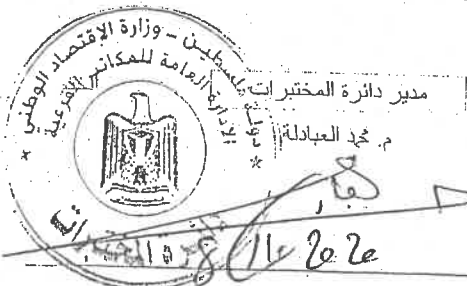 دولة فلسطين - وزارة الإقتصاد الوطني
الإدارة العامة للمكاتب الفرعية
مدير دائرة المختبرات
م. محمد العبادلة
دائرة المختبرات
11/2020